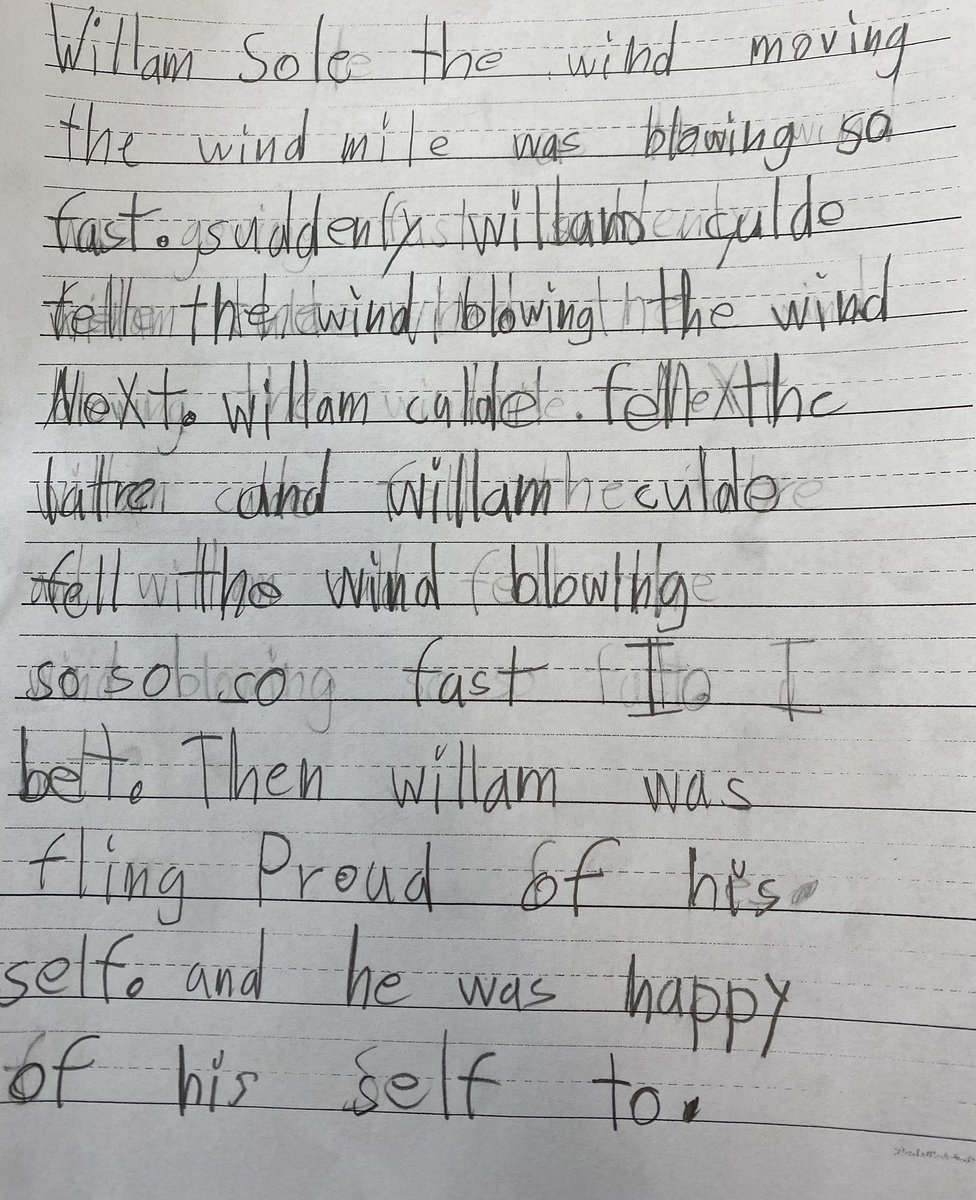 Willam Sole the wind moving
the wind mile was blowing so
fast. suddenly willam culde
fell the wind blowing the wind
Next. willam culde. fell the
and willam culde
fell the wind blowing
so so so fast I
bett. Then willam was
fling Proud of his
self. and he was happy
of his self to.